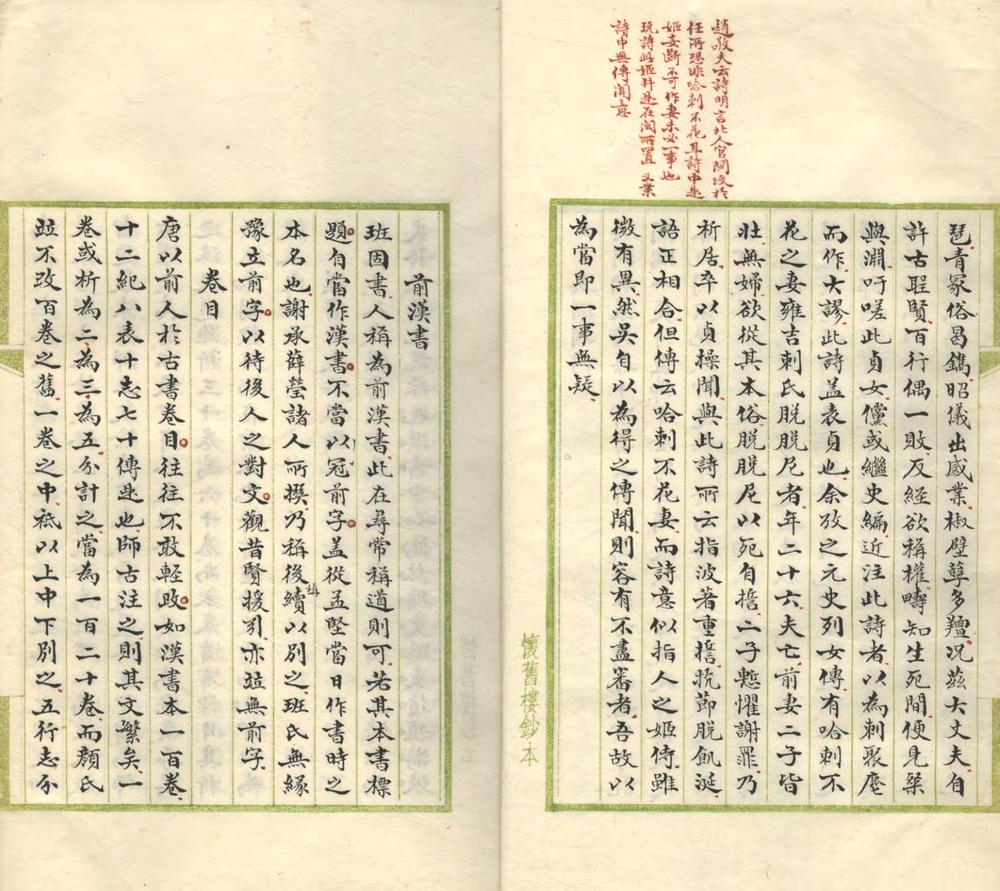 趙敬夫云詩明言北人官閩後於
任所恐非哈剌不花耳詩中是
姬妾斷不可作妻未必一事也
玩詩此姬并是在閩所置 又案
詩中無傳聞意
琶青冢俗曷鐫昭儀出感業椒壁孽多羶况茲大丈夫自
許古聖賢百行偶一敗反經欲稱權疇知生死間便見桀
與淵吁嗟此貞女儻或繼史編近注此詩者以為刺聚麀
而作大謬此詩盖表貞也余攷之元史列女傳有哈剌不
花之妻雍吉剌氏脫脫尼者年二十六夫亡前妻二子皆
壯無婦欲從其本俗脫脫尼以死自誓二子慙懼謝罪乃
析居卒以貞操聞與此詩所云指波著重誓抗節脫飢涎
語正相合但傳云哈剌不花妻而詩意似指人之姬侍雖
微有異然吳自以為得之傳聞則容有不盡審者吾故以
為當即一事無疑
懷舊樓鈔本
前漢書
班固書人稱為前漢書此在尋常稱道則可若其本書標
題自當作漢書不當以冠前字盖從孟堅當日作書時之
本名也謝承薛瑩諸人所撰乃稱後續以別之班氏無緣
豫立前字以待後人之對文觀昔賢援引亦竝無前字
卷目
唐以前人於古書卷目往往不敢輕改如漢書本一百卷
十二紀八表十志七十傳是也師古注之則其文繁矣一
卷或析為二為三為五分計之當為一百二十卷而顏氏
竝不改百卷之舊一卷之中袛以上中下別之五行志分